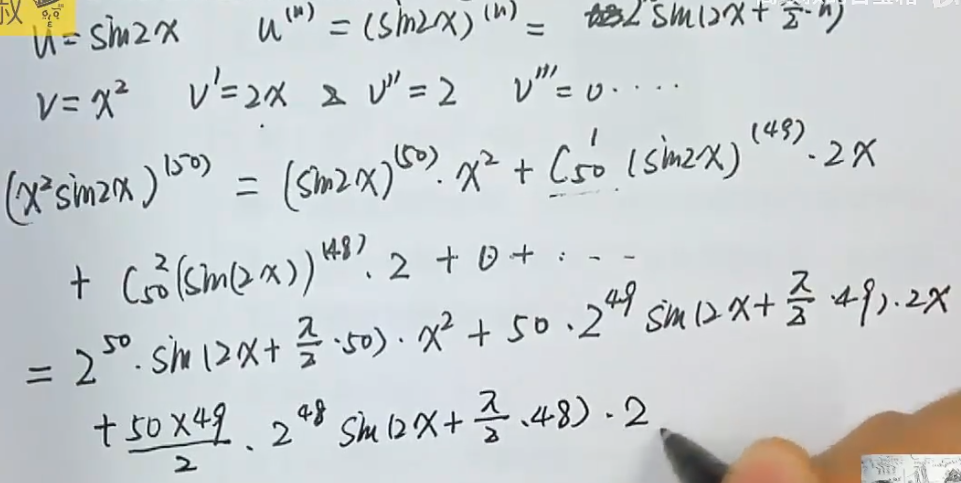 叔
u = sin2x u^(n) = (sin2x)^(n) = 2^n sin(2x + π/2 · n)
v = x² v' = 2x v'' = 2 v''' = 0 · · · ·
(x² sin2x)^(50) = (sin2x)^(50) · x² + C₅₀¹ (sin2x)^(49) · 2x
+ C₅₀² (sin(2x))^(48) · 2 + 0 + · · ·
= 2^50 · sin(2x + π/2 · 50) · x² + 50 · 2^49 sin(2x + π/2 · 49) · 2x
+ 50×49/2 · 2^48 sin(2x + π/2 · 48) · 2